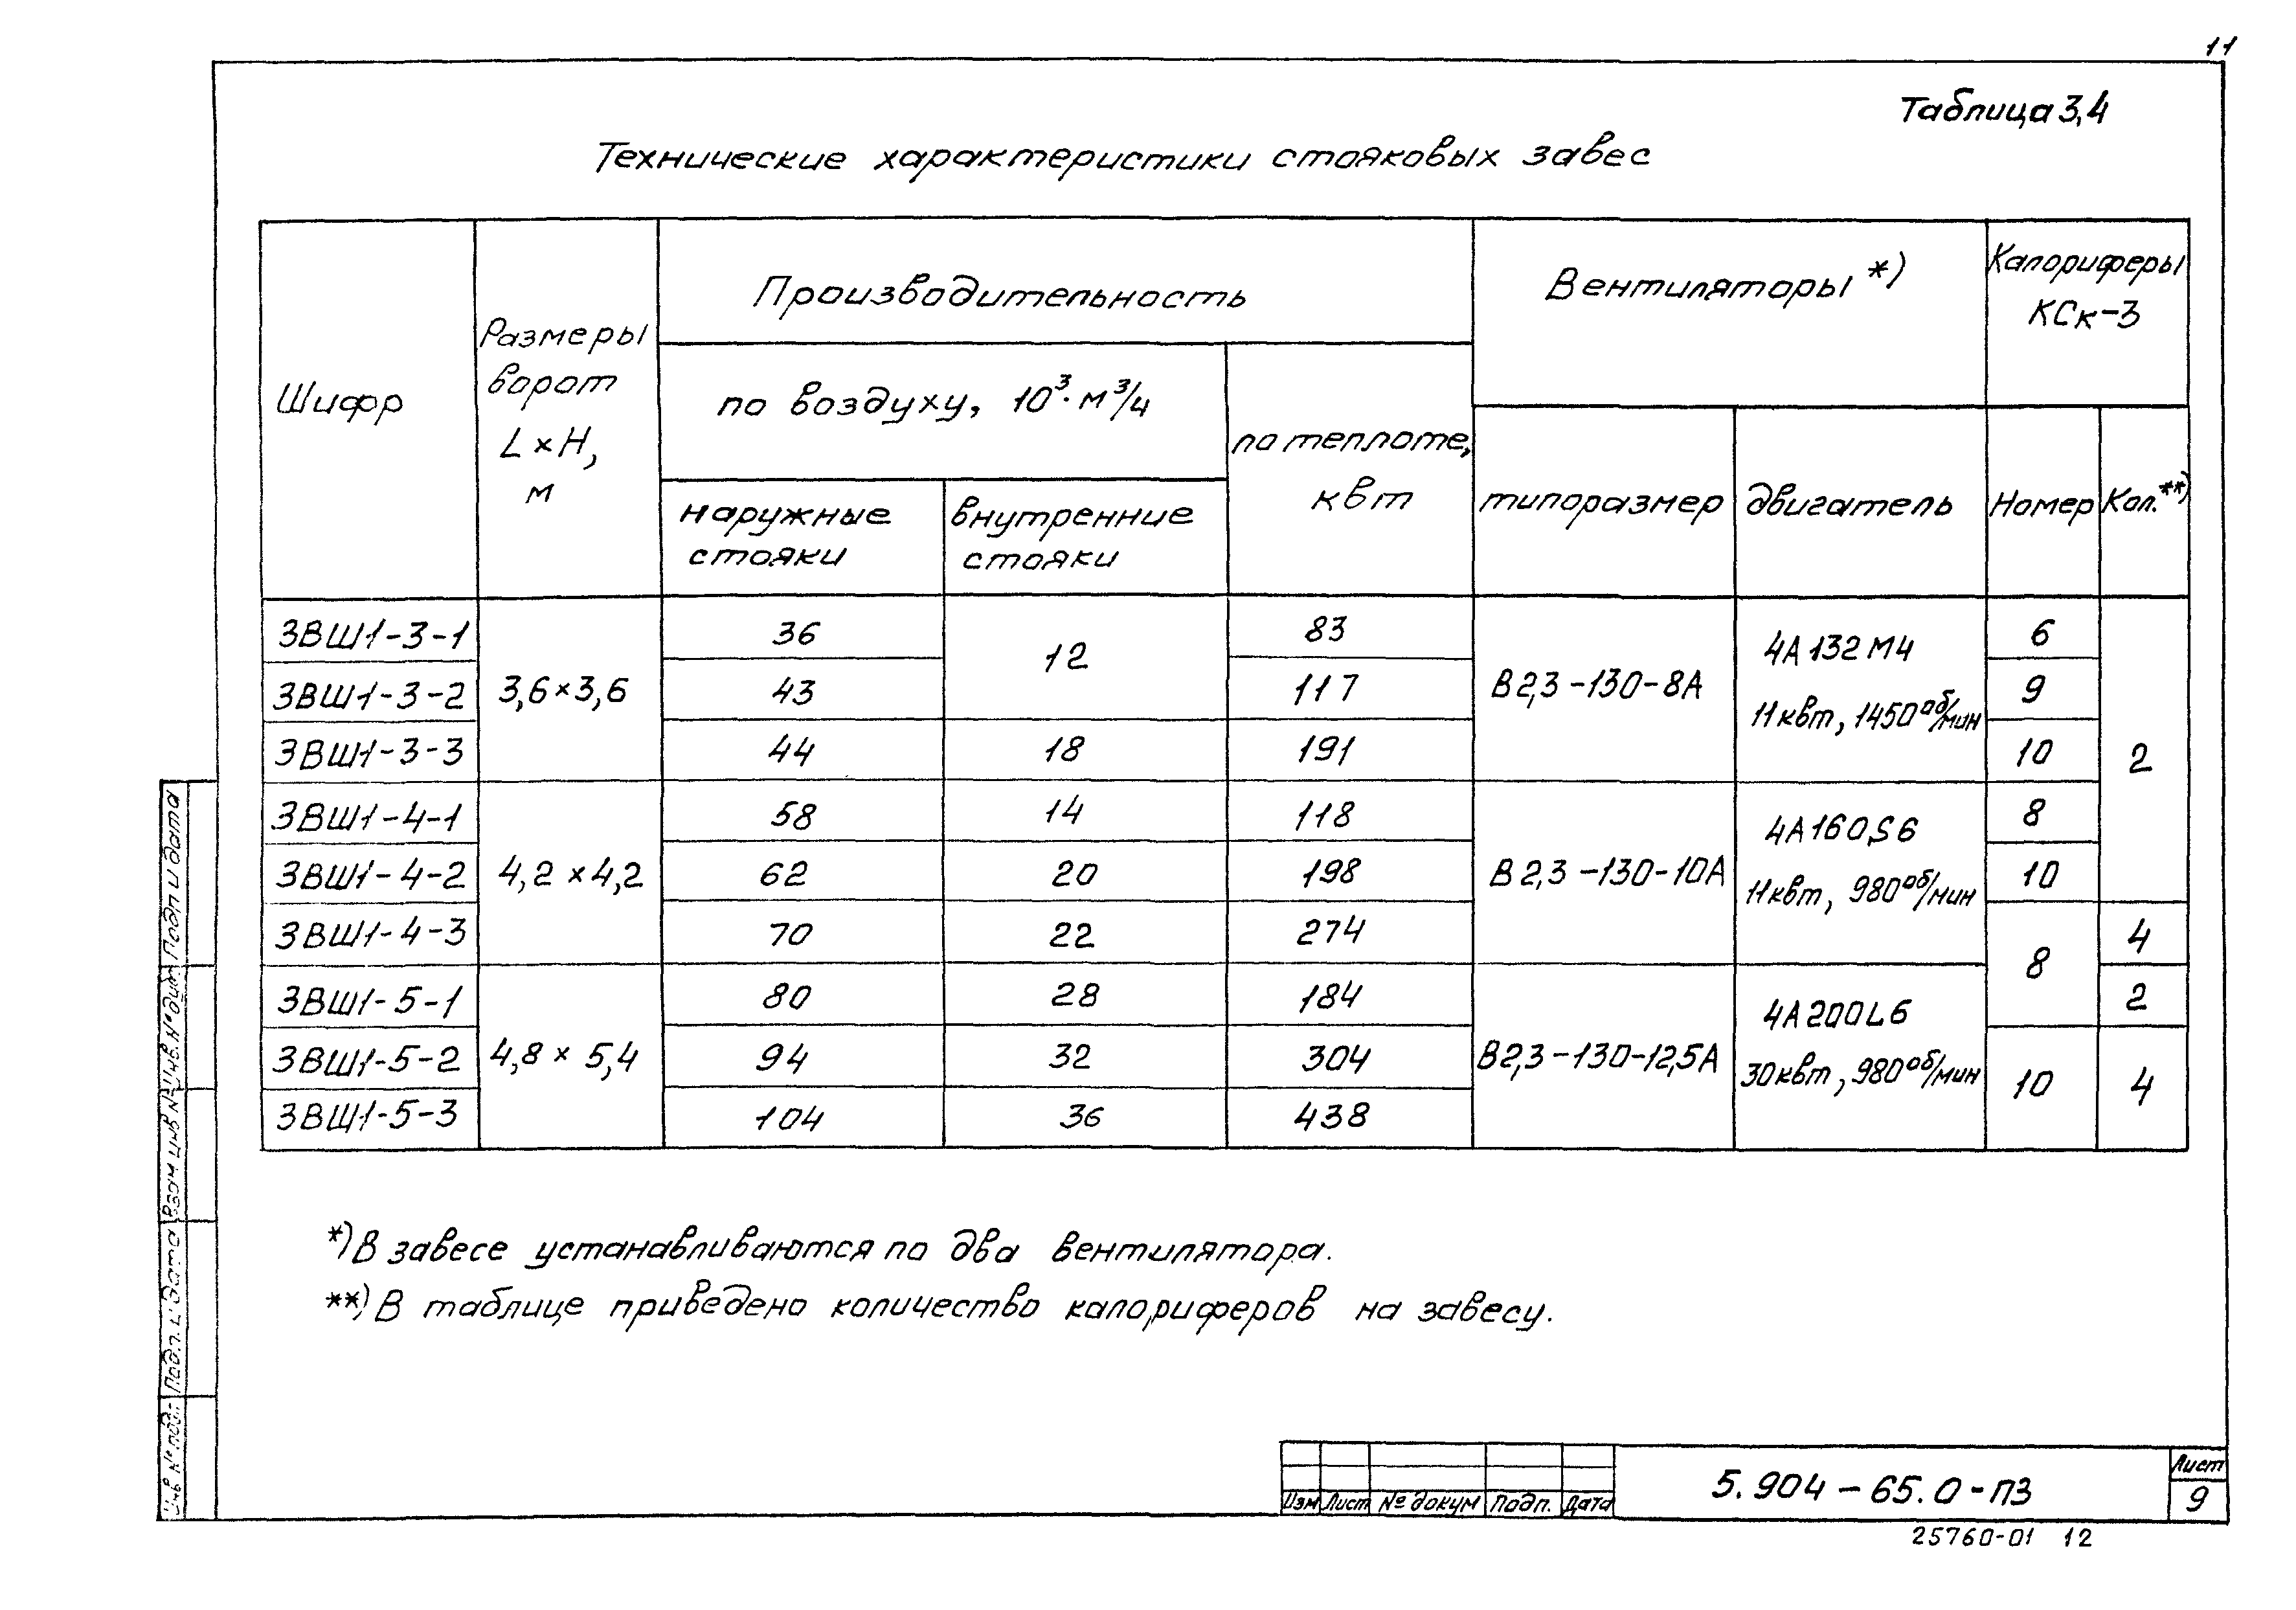 11
Таблица 3,4
Технические характеристики стояковых завес
Шифр
Размеры ворот L×H, м
Производительность
по воздуху, 10³·м³/ч
наружные стояки
внутренние стояки
по теплоте, квт
Вентиляторы *)
типоразмер
двигатель
Калориферы КСк-3
Номер
Кол.**)
ЗВШ1-3-1 3,6×3,6 36 12 83 В2,3-130-8А 4А132М4 11квт, 1450об/мин 6 2
ЗВШ1-3-2 43 117 9
ЗВШ1-3-3 44 18 191 10
ЗВШ1-4-1 4,2×4,2 58 14 118 В2,3-130-10А 4А160S6 11квт, 980об/мин 8
ЗВШ1-4-2 62 20 198 10
ЗВШ1-4-3 70 22 274 8 4
ЗВШ1-5-1 4,8×5,4 80 28 184 В2,3-130-12,5А 4А200L6 30квт, 980об/мин 2
ЗВШ1-5-2 94 32 304 10 4
ЗВШ1-5-3 104 36 438
*) В завесе устанавливаются по два вентилятора.
**) В таблице приведено количество калориферов на завесу.
Инв № подл. Подп. и дата Взам инв № Инв. № дубл. Подп и дата
Изм Лист № докум Подп. Дата
5.904-65.0-ПЗ
Лист
9
25760-01 12